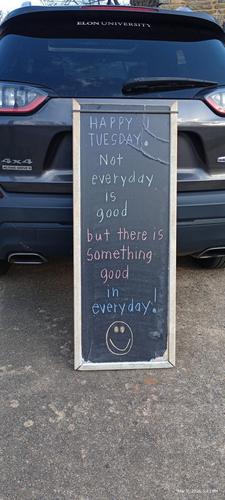 ELON UNIVERSITY
4x4
HAPPY
TUESDAY.
Not
everyday
is
good
but there is
something
good
in
everyday!